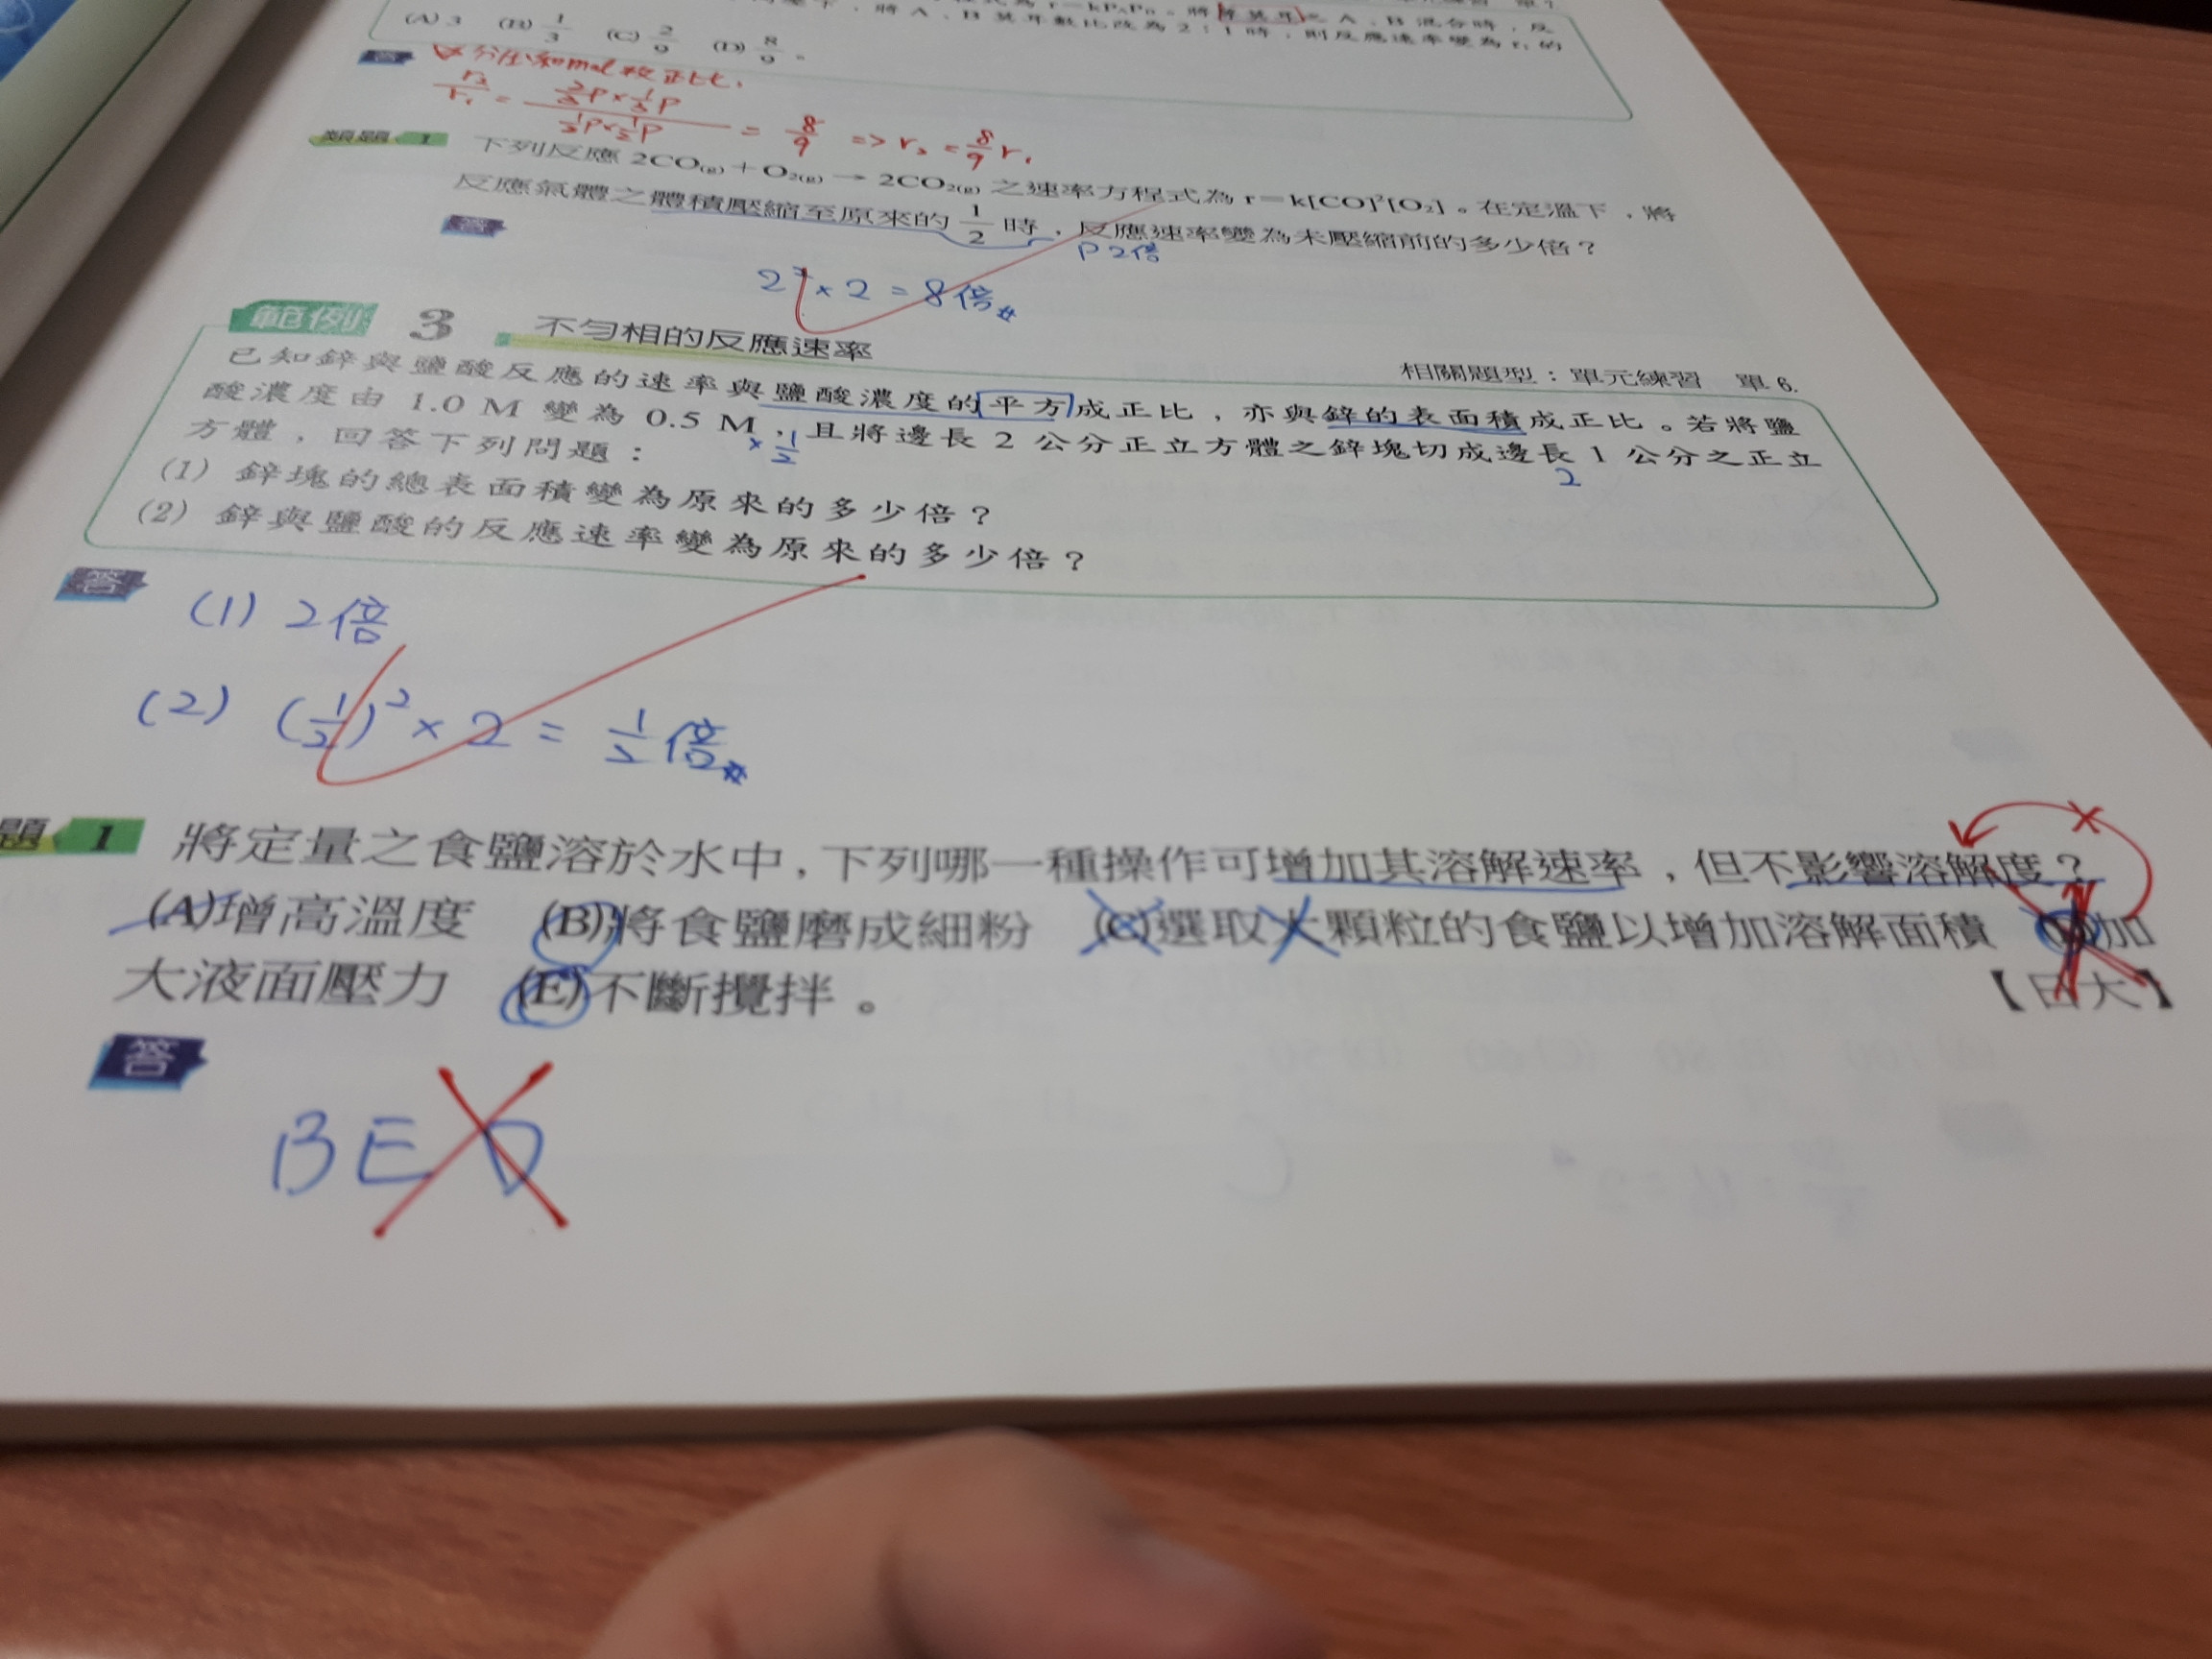 式為 r=kPAPB。將等莫耳之A、B混合時,反
下,將A、B莫耳數比改為2:1時,則反應速率變為r₁的
(A) 3 (B) 1/3 (C) 2/9 (D) 8/9。
答 分壓和mol數正比,
r₂/r₁ = (2/3P×1/3P)/(1/2P×1/2P) = 8/9 => r₂ = 8/9 r₁
類題 1 下列反應 2CO(g)+O₂(g)→2CO₂(g) 之速率方程式為 r=k[CO]²[O₂]。在定溫下,將
反應氣體之體積壓縮至原來的 1/2 時,反應速率變為未壓縮前的多少倍?
答 P 2倍
2² × 2 = 8倍#
範例 3 不勻相的反應速率
相關題型:單元練習 單 6.
已知鋅與鹽酸反應的速率與鹽酸濃度的平方成正比,亦與鋅的表面積成正比。若將鹽
酸濃度由 1.0 M 變為 0.5 M,且將邊長 2 公分正立方體之鋅塊切成邊長 1 公分之正立
× 1/2 2
方體,回答下列問題:
(1) 鋅塊的總表面積變為原來的多少倍?
(2) 鋅與鹽酸的反應速率變為原來的多少倍?
答
(1) 2倍
(2) (1/2)² × 2 = 1/2倍#
題 1 將定量之食鹽溶於水中,下列哪一種操作可增加其溶解速率,但不影響溶解度?
(A)增高溫度 (B)將食鹽磨成細粉 (C)選取大顆粒的食鹽以增加溶解面積 (D)加
大液面壓力 (E)不斷攪拌。 【日大】
答
BED